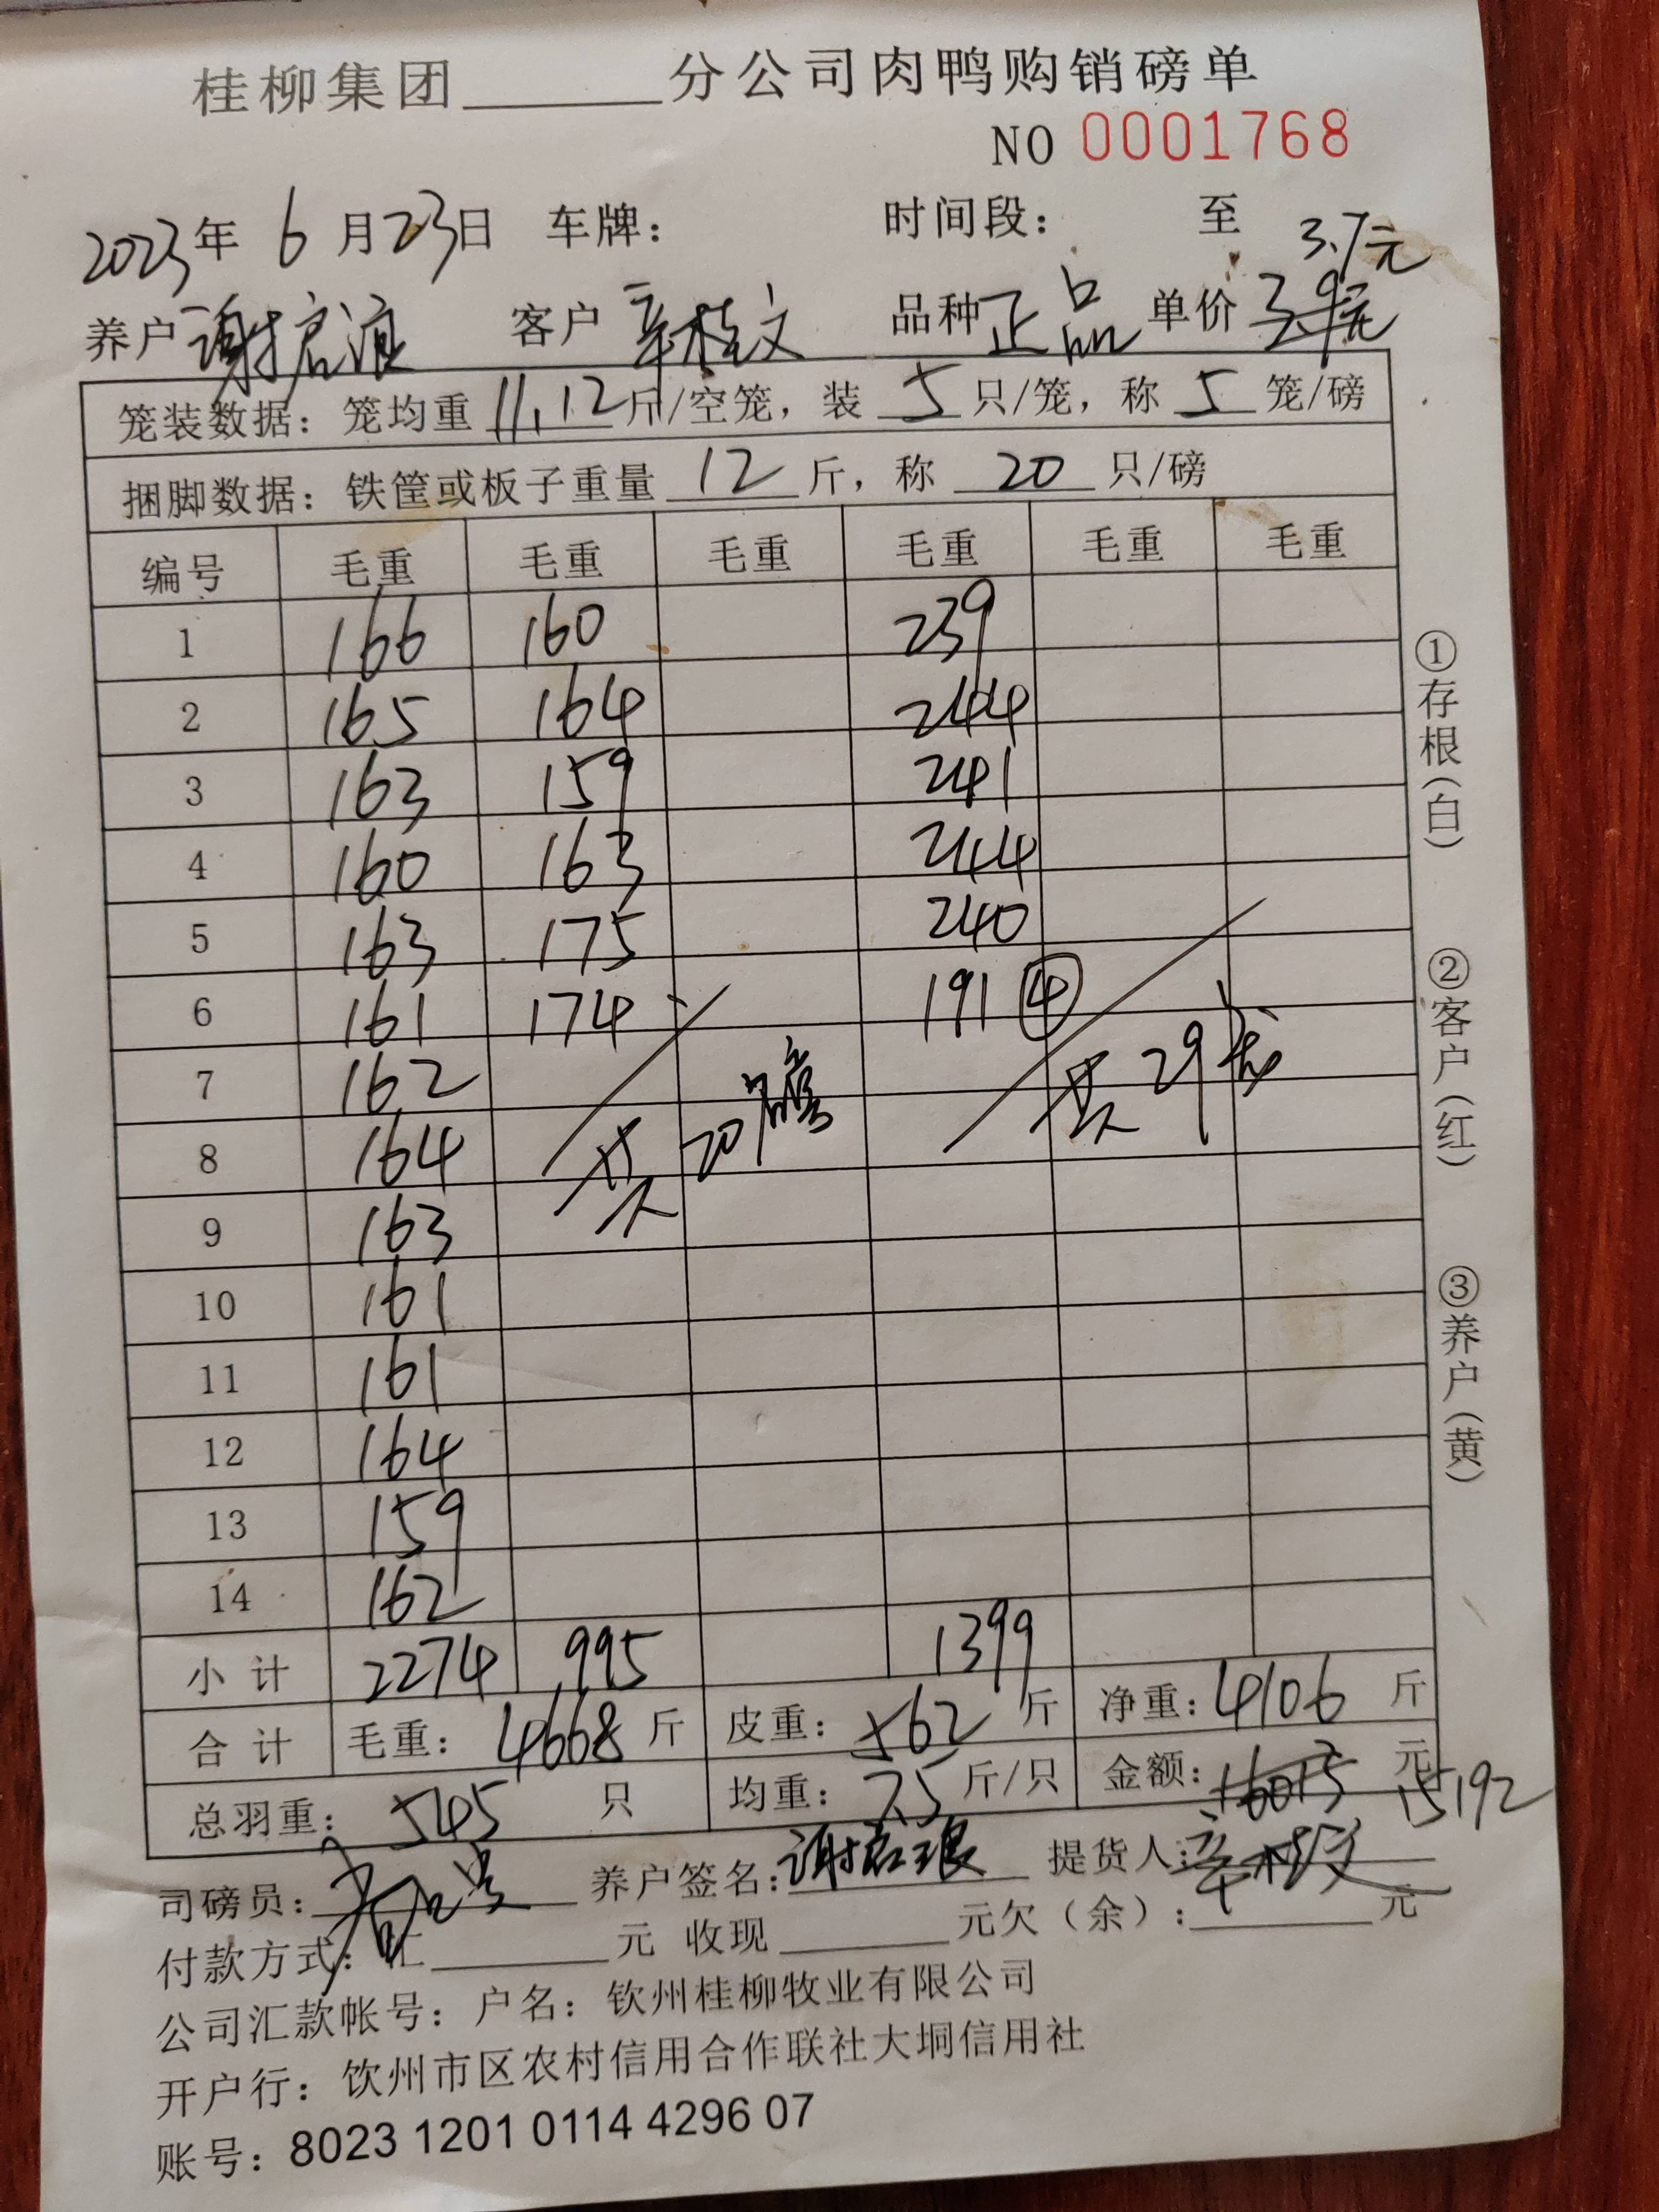 桂柳集团______分公司肉鸭购销磅单
NO 0001768
2023年 6月23日 车牌： 时间段： 至
3.7元
养户 谢启浪 客户 辛桂文 品种 正品 单价 3.9元
笼装数据：笼均重 11.12 斤/空笼，装 5 只/笼，称 5 笼/磅
捆脚数据：铁筐或板子重量 12 斤，称 20 只/磅
编号 毛重 毛重 毛重 毛重 毛重 毛重
1 166 160 239
2 165 164 244
3 163 159 241
4 160 163 244
5 163 175 240
6 161 174 191 ④
7 162 共29笼
8 164 共20磅
9 163
10 161
11 161
12 164
13 159
14 162
小计 2274 995 1399
合计 毛重：4668 斤 皮重：562 斤 净重：4106 斤
总羽重：545 只 均重：7.5 斤/只 金额：16013 元 15192
司磅员： 养户签名：谢启浪 提货人：辛桂文
付款方式：汇______元 收现______元欠（余）：______元
公司汇款帐号：户名：钦州桂柳牧业有限公司
开户行：钦州市区农村信用合作联社大垌信用社
账号：8023 1201 0114 4296 07
①存根（白）
②客户（红）
③养户（黄）